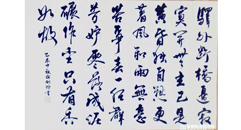 驛外斷橋邊寂
寞開無主已是
黃昏獨自愁更
著風和雨無意
苦爭春一任群
芳妒零落成泥
碾作塵只有香
如故